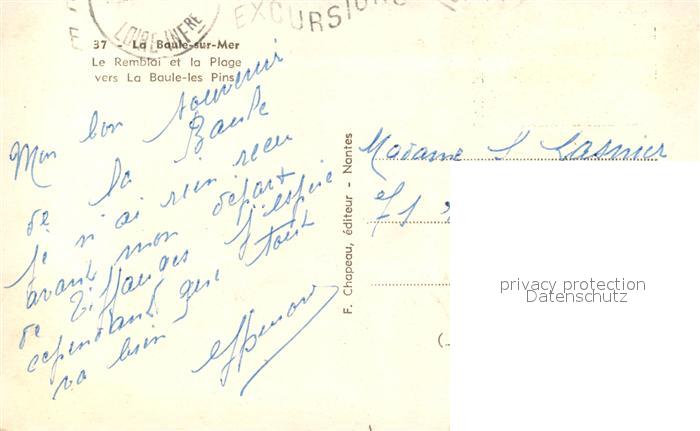 LOIRE-INFRE
EXCURSIONS
37 - La Baule-sur-Mer
Le Remblai et la Plage
vers La Baule-les Pins
Mon bon souvenir
de la Baule
Je n'ai rien recu
avant mon départ
de Tiffauges J'espère
cependant que tout
va bien
F. Chapeau, éditeur - Nantes
Madame
privacy protection
Datenschutz